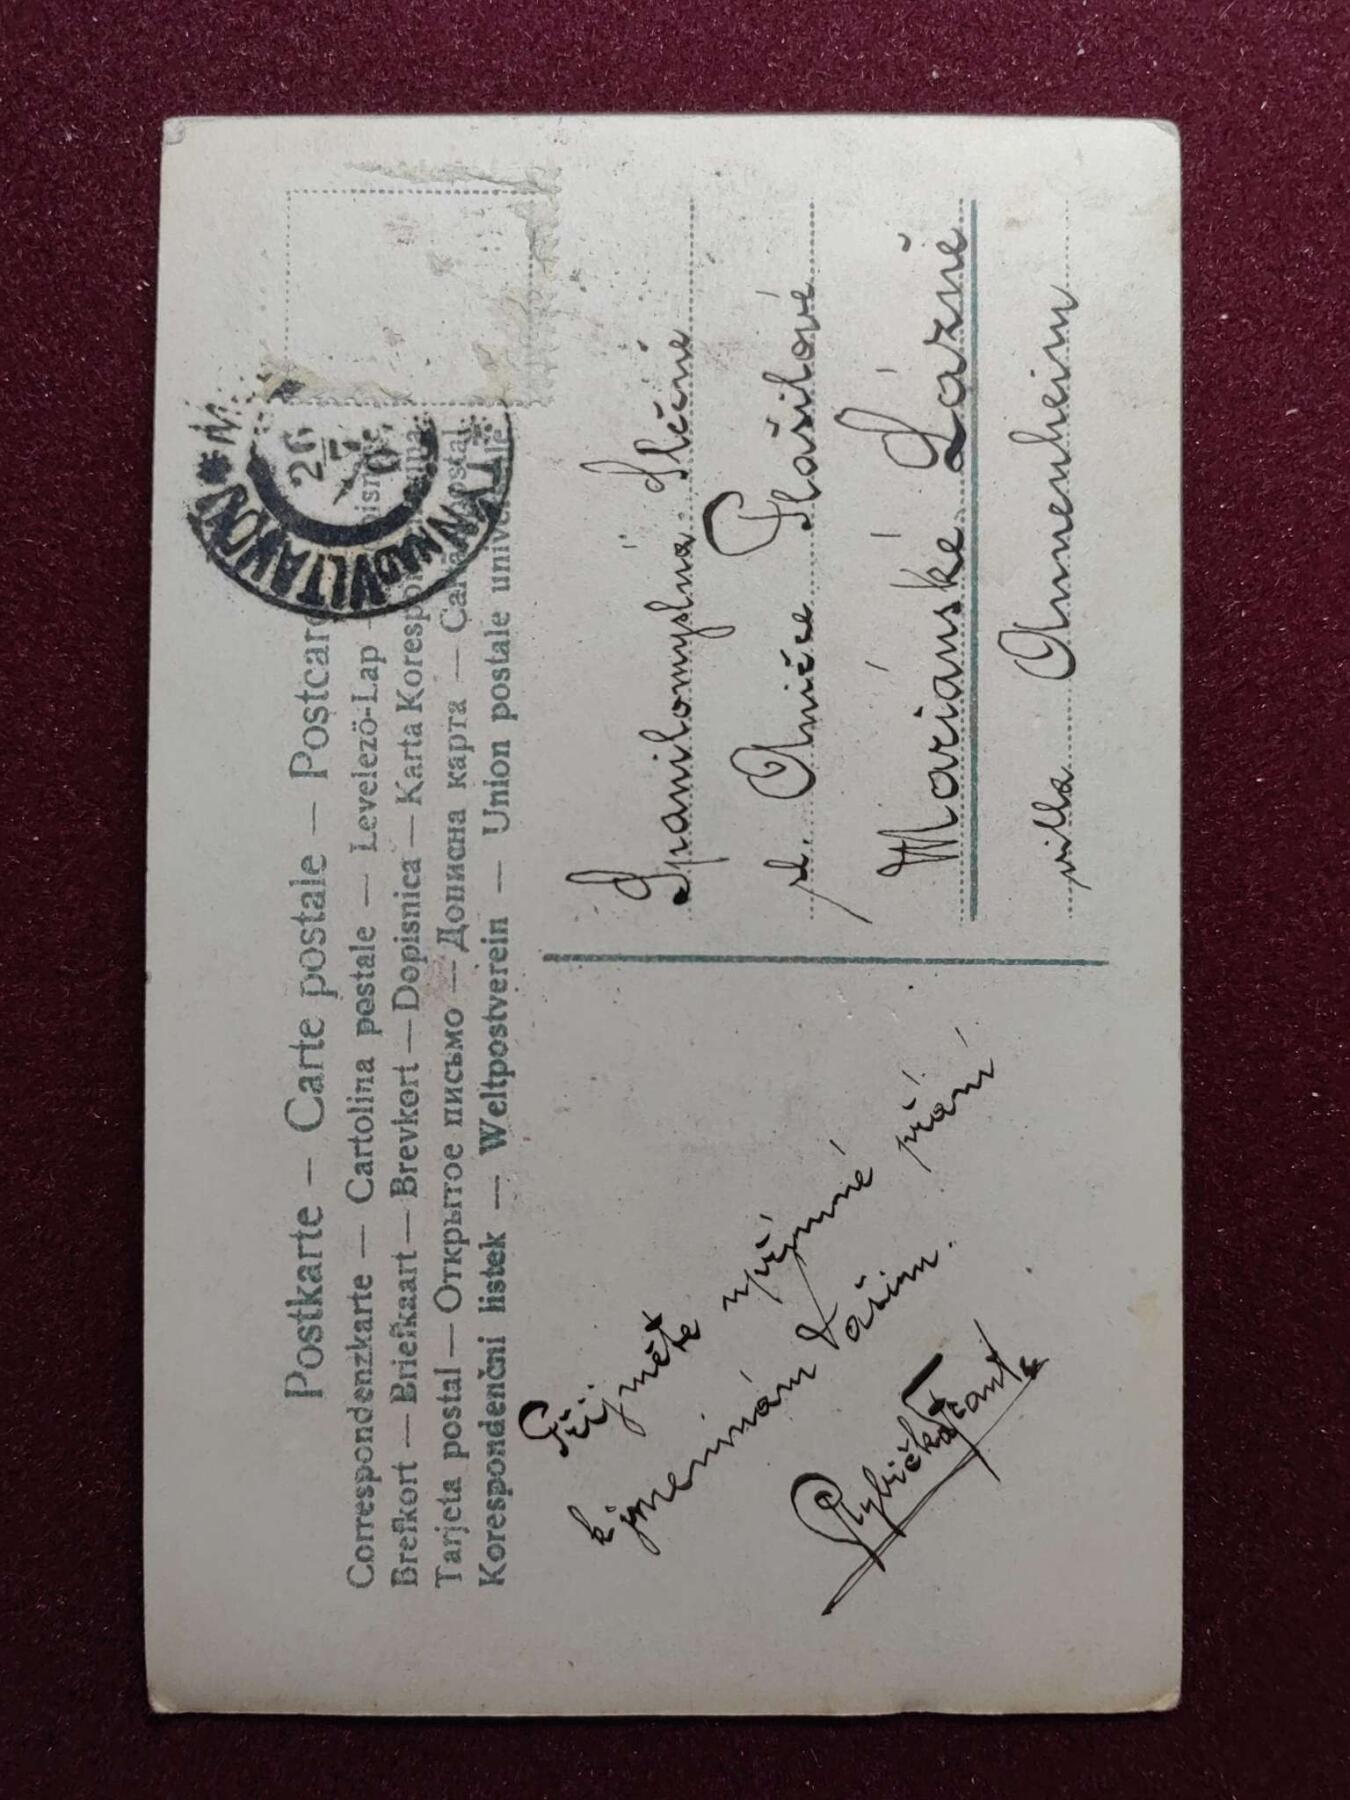 Postkarte — Carte postale — Postcard
Correspondenzkarte — Cartolina postale — Levelező-Lap
Brefkort — Briefkaart — Brevkort — Dopisnica — Karta Korespondencyjna
Tarjeta postal — Открытое письмо — Дописна карта — Carta postal
Korespondenční lístek — Weltpostverein — Union postale universelle
TÝN NAD VLTAVOU
26
7
0
Spanilomyslná Slečně
sl. Aničce Plašilové
Mariánské Lázně
villa Annenheim
Přijměte upřímné přání
k jmeninám Vašim.
Rybička